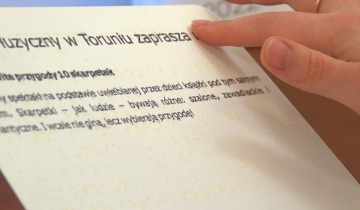 Muzyczny w Toruniu zaprasza
przygody 10 skarpetek
spektakl na podstawie uwielbianej przez dzieci książki pod tym samym
Skarpetki – jak ludzie – bywają różne: szalone, zawadiackie i
antyczne. I wcale nie giną, lecz wybierają przygodę!